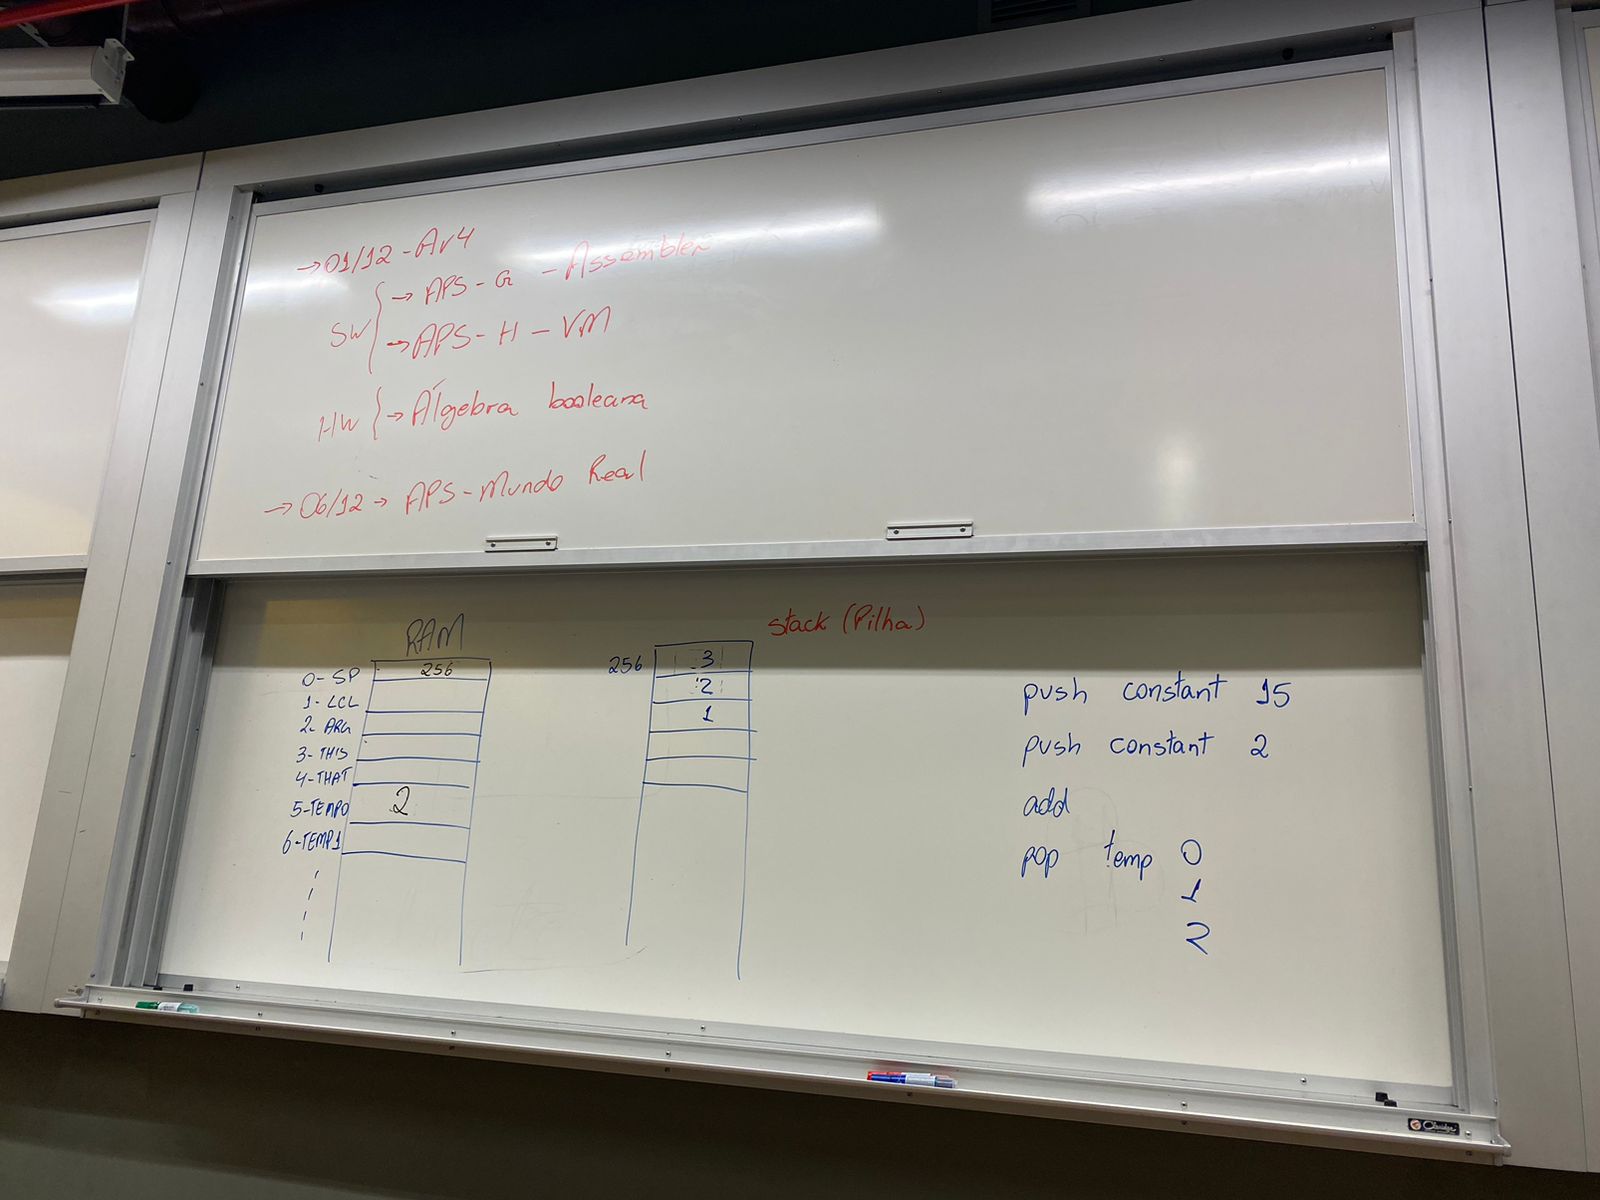 → 01/12 - Av4
SW { → APS - G - Assembler
→ APS - H - VM
HW { → Álgebra booleana
→ 06/12 → APS - Mundo Real
RAM
0 - SP 256
1 - LCL
2 - ARG
3 - THIS
4 - THAT
5 - TEMP0 2
6 - TEMP1
stack (Pilha)
256 3
2
1
push constant 15
push constant 2
add
pop temp 0
1
2